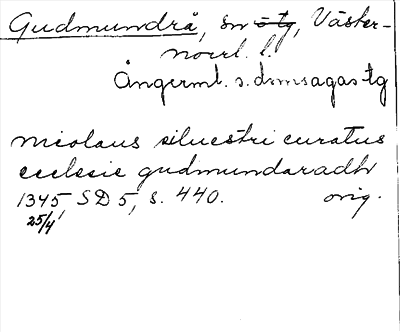 Gudmundrå, sn ö tg, Väster-
norrl. l.
Ångerml. s. domsagas tg
nicolaus siluestri curatus
ecclesie gudmundaradh
1345 SD 5, s. 440. orig.
25/4